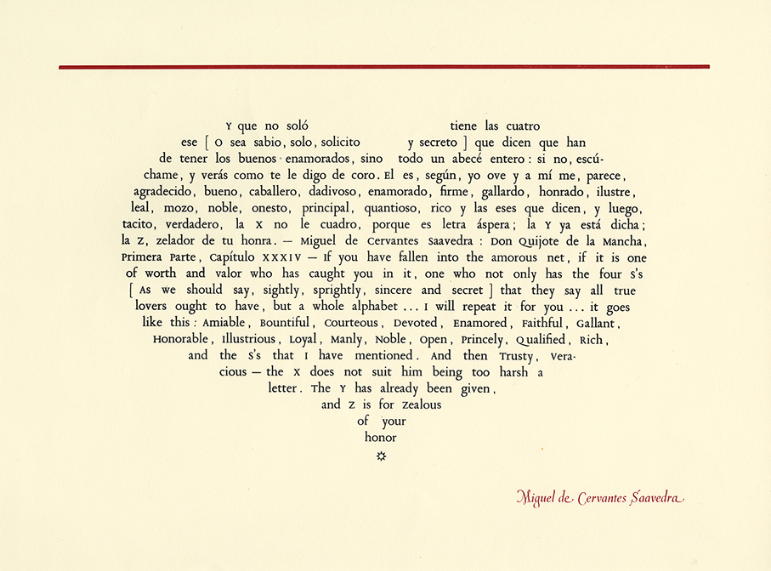 Y que no soló tiene las cuatro
ese [ O sea sabio, solo, solicito y secreto ] que dicen que han
de tener los buenos enamorados, sino todo un abecé entero : si no, escú-
chame, y verás como te le digo de coro. El es, según, yo ove y a mí me, parece,
agradecido, bueno, caballero, dadivoso, enamorado, firme, gallardo, honrado, ilustre,
leal, mozo, noble, onesto, principal, quantioso, rico y las eses que dicen, y luego,
tacito, verdadero, la X no le cuadro, porque es letra áspera; la Y ya está dicha;
la Z, zelador de tu honra. — Miguel de Cervantes Saavedra : Don Quijote de la Mancha,
Primera Parte, Capítulo XXXIV — If you have fallen into the amorous net, if it is one
of worth and valor who has caught you in it, one who not only has the four S's
[ As we should say, sightly, sprightly, sincere and secret ] that they say all true
lovers ought to have, but a whole alphabet ... I will repeat it for you ... it goes
like this : Amiable, Bountiful, Courteous, Devoted, Enamored, Faithful, Gallant,
Honorable, Illustrious, Loyal, Manly, Noble, Open, Princely, Qualified, Rich,
and the S's that I have mentioned. And then Trusty, Vera-
cious — the X does not suit him being too harsh a
letter. The Y has already been given,
and Z is for Zealous
of your
honor
Miguel de Cervantes Saavedra